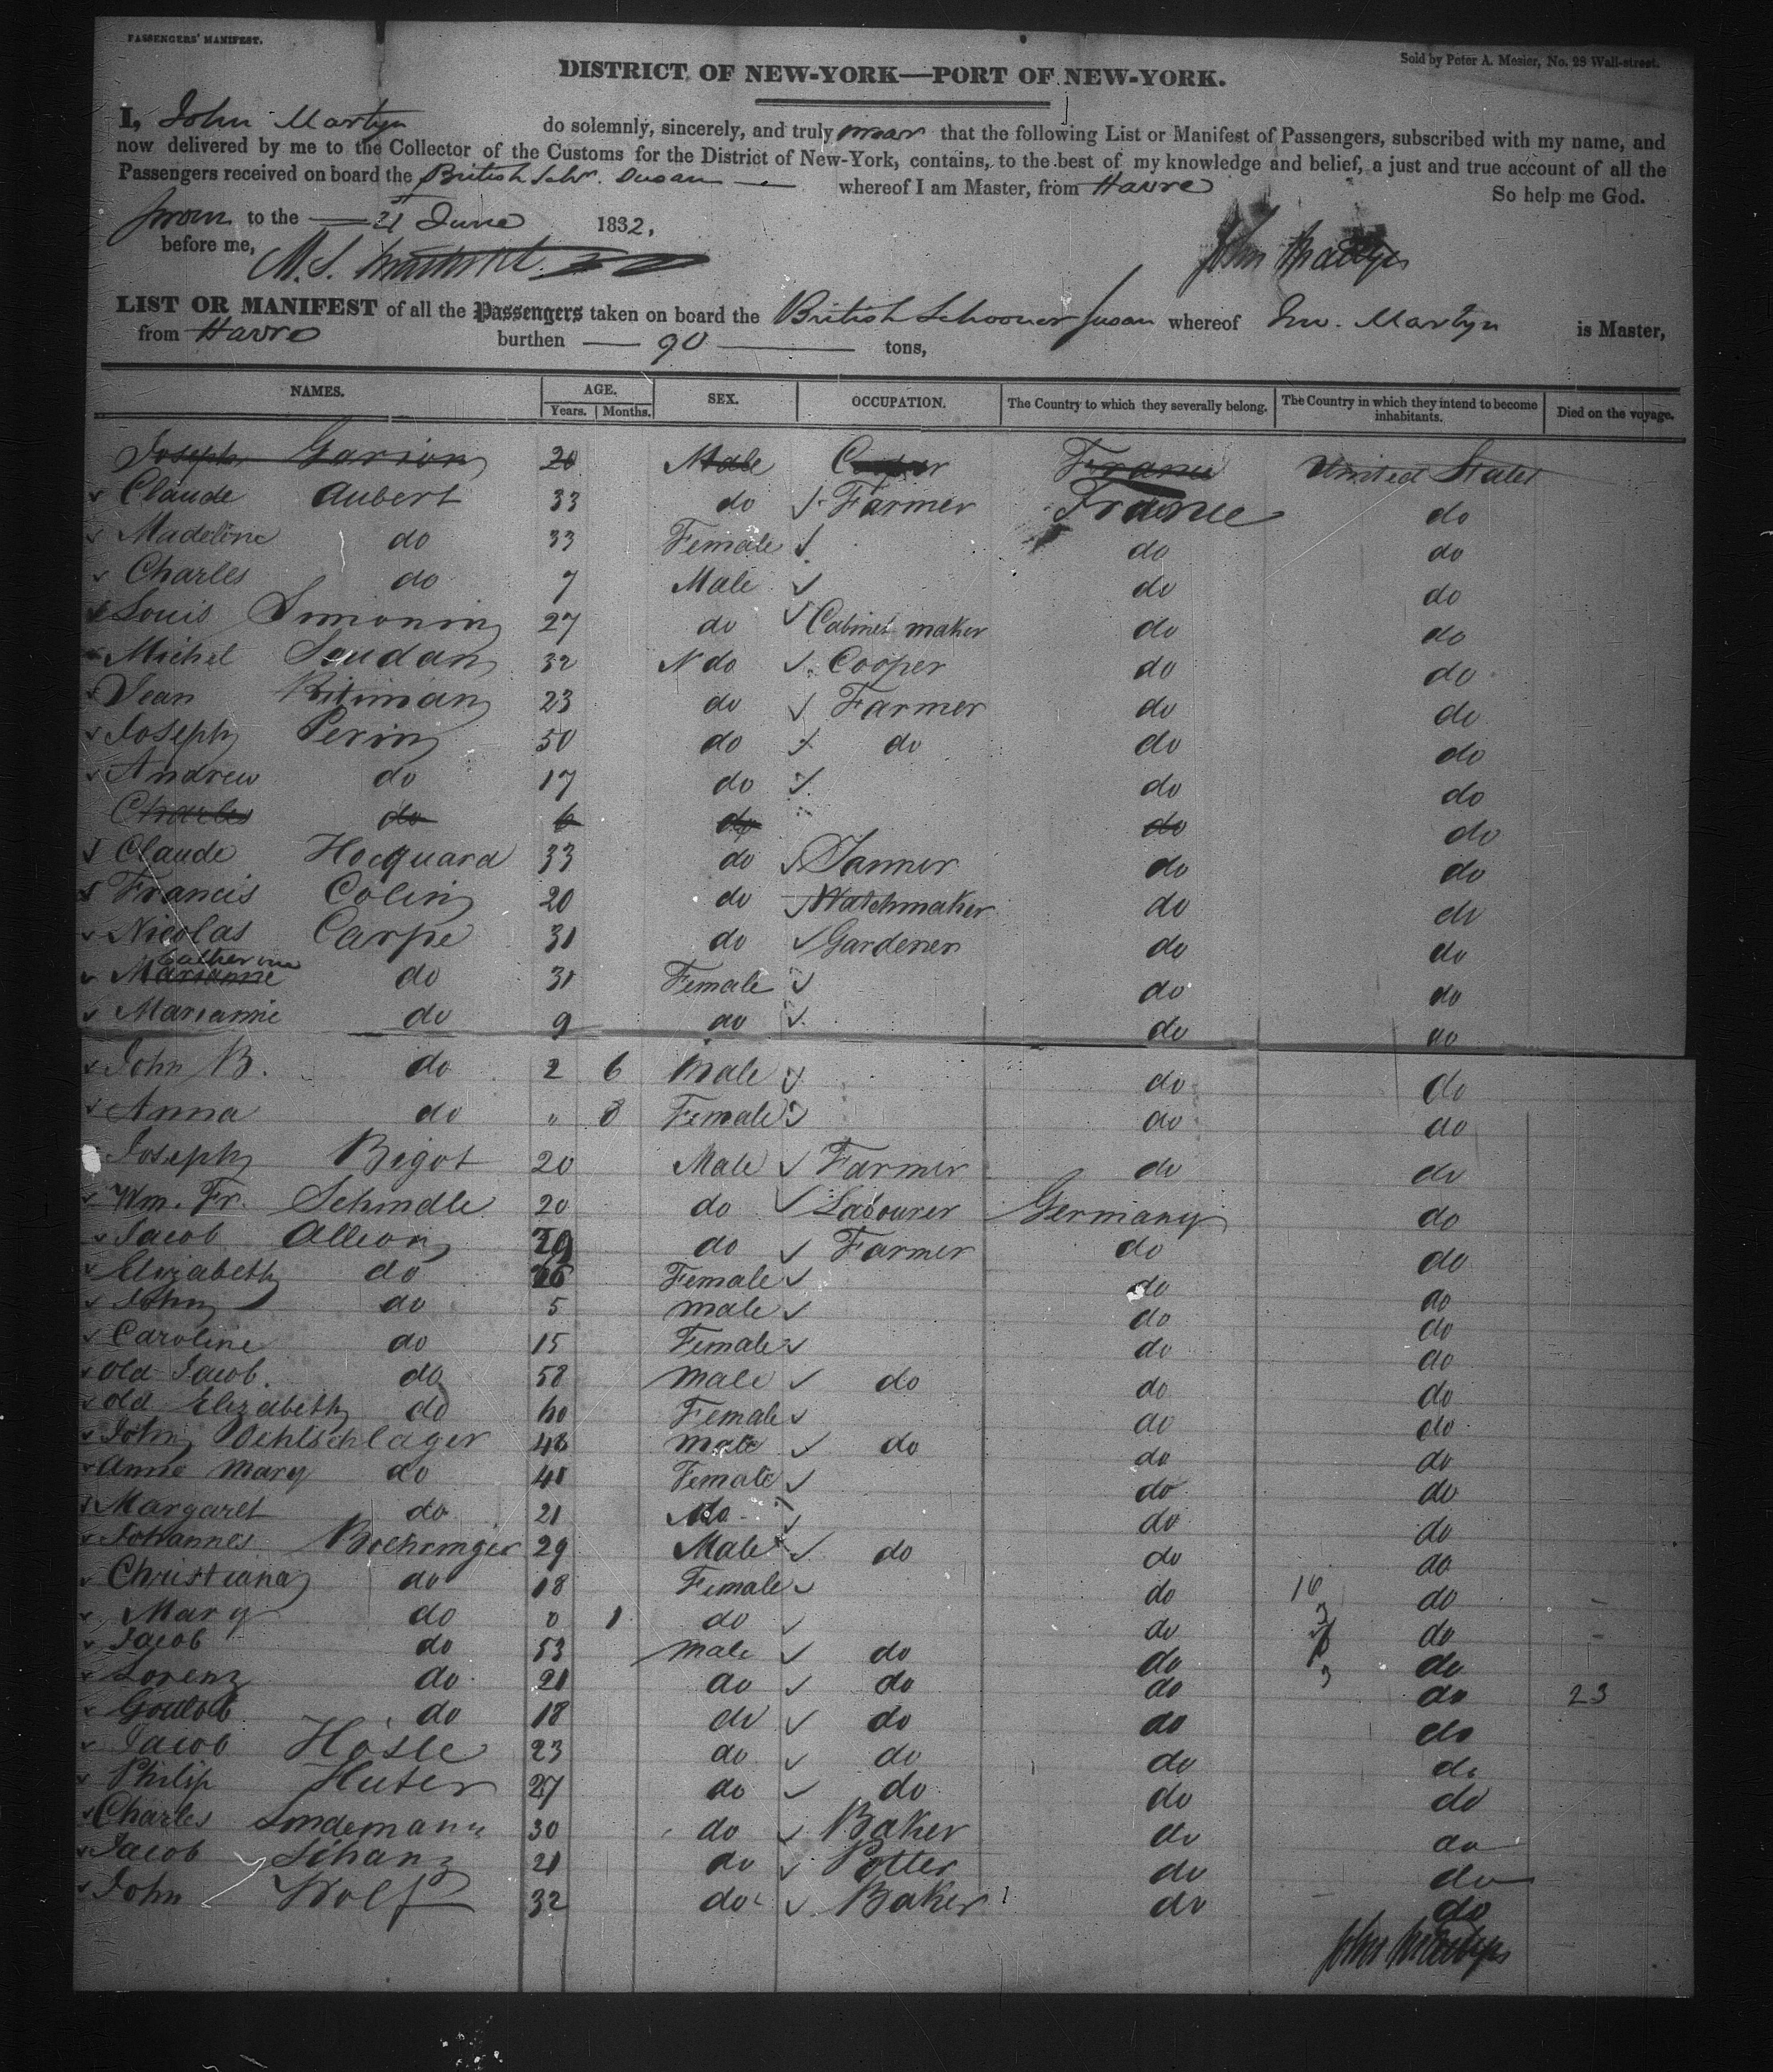 PASSENGERS' MANIFEST.
Sold by Peter A. Mesier, No. 28 Wall-street.
DISTRICT OF NEW-YORK—PORT OF NEW-YORK.
I, John Martyn do solemnly, sincerely, and truly swear that the following List or Manifest of Passengers, subscribed with my name, and
now delivered by me to the Collector of the Customs for the District of New-York, contains, to the best of my knowledge and belief, a just and true account of all the
Passengers received on board the British Schr. Susan whereof I am Master, from Havre So help me God.
Sworn to the 21st June 1832.
before me, M. S. John Martyn
LIST OR MANIFEST of all the Passengers taken on board the British Schooner Susan whereof Jno. Martyn is Master,
from Havre burthen 90 tons,
NAMES. AGE. SEX. OCCUPATION. The Country to which they severally belong. The Country in which they intend to become inhabitants. Died on the voyage.
Years. Months.
Joseph Garion 20 Male Cooper France United States
Claude Aubert 33 do Farmer France do
Madeline do 33 Female do do
Charles do 7 Male do do
Louis Simonin 27 do Cabinet maker do do
Michel Soudan 32 do Cooper do do
Jean Ritiman 23 do Farmer do do
Joseph Perin 50 do do do do
Andrew do 17 do do do
Charles do 6 do do do
Claude Hocquard 33 do Tanner do do
Francis Colin 20 do Watchmaker do do
Nicolas Carpe 31 do Gardener do do
Catherine
Marianne do 31 Female do do
Marianne do 9 do do do
John B. do 2 6 Male do do
Anna do " 8 Female do do
Joseph Bigot 20 Male Farmer do do
Wm. Fr. Schindle 20 do Labourer Germany do
Jacob Alleon 29 do Farmer do do
Elizabeth do 26 Female do do
John do 5 male do do
Caroline do 15 Female do do
old Jacob. do 58 male do do do
old Elizabeth do 60 Female do do
John Oehlschlager 48 male do do do
Anne Mary do 48 Female do do
Margaret do 21 do do do
Johannes Boehringer 29 Male do do do
Christiana do 18 Female do 16 do
Mary do 0 1 do do 3 do
Jacob do 53 male do do do
Lorenz do 21 do do do 3 do 23
Gottlob do 18 do do do do
Jacob Hosle 23 do do do do
Philip Huter 27 do do do do
Charles Lindemann 30 do Baker do do
Jacob Schanz 21 do Potter do do
John Wolf 32 do Baker do do
John Martyn